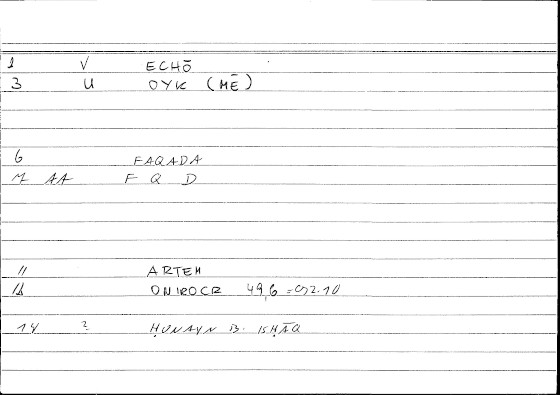 1 V ECHŌ
3 U OYK (MĒ)
6 FAQADA
M AA F Q D
11 ARTEM
12 ONIROCR 49,6 = 92.10
14 ? ḤUNAYN B. ISḤĀQ